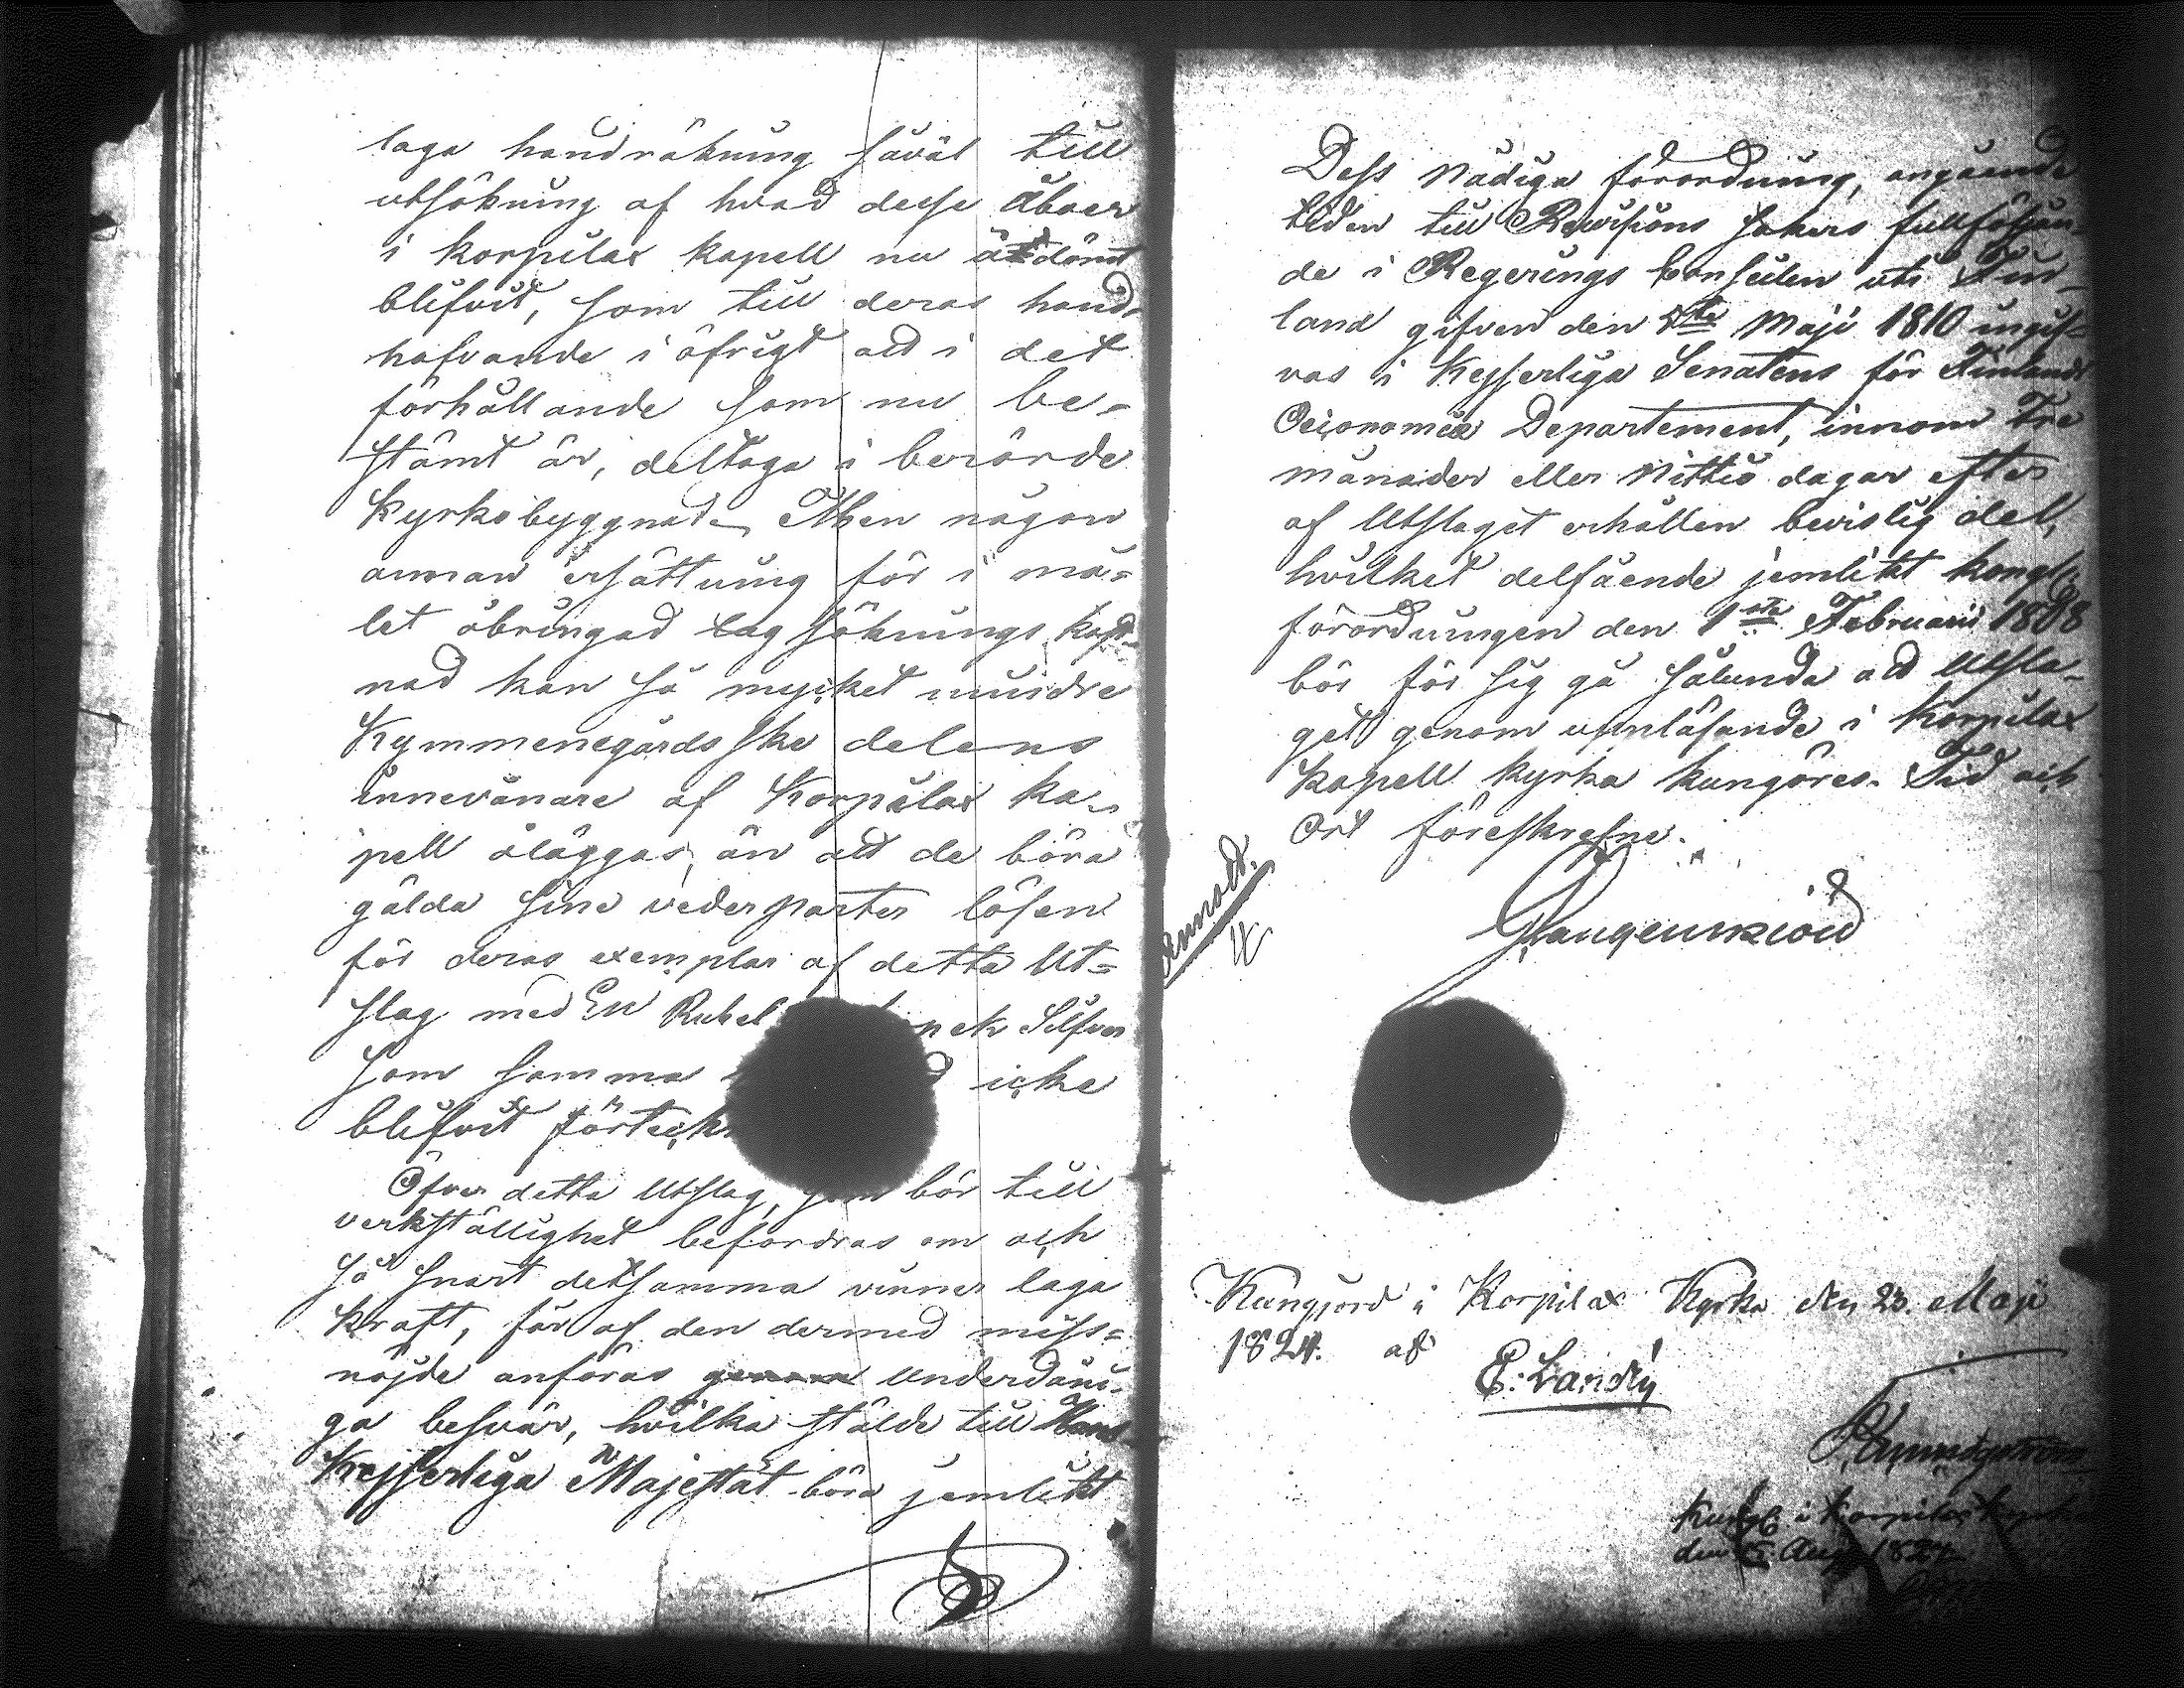 laga handräkning såväl till
utsökning af hvad desse Åboer
i Korpilax kapell nu ådömt
blifvit, som till deras hand-
hafvande i öfrigt att i det
förhållande som nu be-
stämt är, deltaga i berörde
Kyrkobyggnad. Men någon
annan ersättning för i må-
let åbringad lagsökningskost-
nad kan så mycket mindre
Kymmenegårdsske delens
innevånare af Korpilax ka-
pell åläggas, än att de böra
gälda sine vederparter lösen
för deras exemplar af detta Ut-
slag med En Rubel Silfver
som samma icke
blifvit
Öfver detta Utslag, som bör till
verkställighet befordras om och
så snart detsamma vinner laga
kraft, får af den dermed miss-
nöjde anföras underdåni-
ga besvär, hvilka stälde till Hans
Kejserliga Majestät böra jemlikt
Dess Nådiga förordning, angående
tiden till Revisions sakers fullföljan-
de i Regerings Conseilen uti Fin-
land gifven den Maji 1810 ingif-
vas i Kejserliga Senatens för Finland
Oeconomie Departement, innom Tre
månader eller Nittio dagar efter
af Utslaget erhållen bevislig del,
hvilket delfående jemlikt kongl.
förordningen den 1sta Februarii 1808
bör för sig gå sålunda att Utsla-
get genom uppläsande i Korpilax
Kapell kyrka kungöres. Tid och
Ort föreskrefne.
Kungjord i Korpilax Kyrka den 23. Maji
1824. af
Kungj i Korpilax Kyrka
den Aug 1824